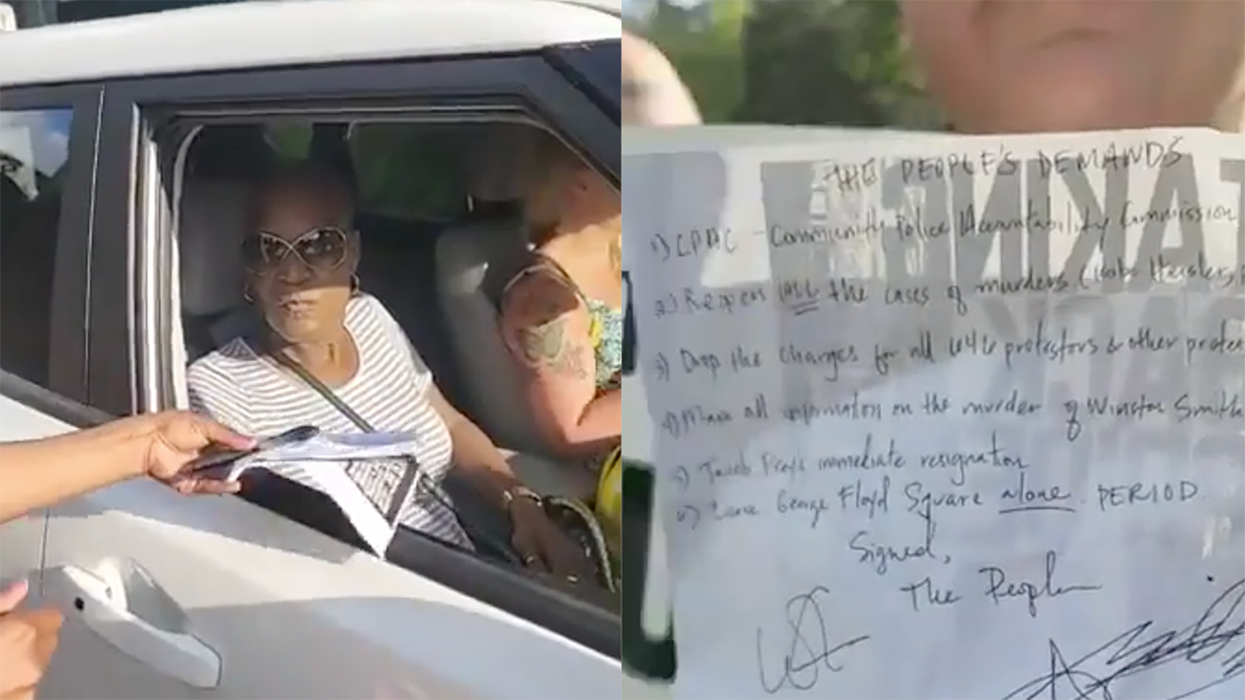 THE PEOPLE'S DEMANDS
1) CPAC - Community Police Accountability Commission
2) Reopen ALL the cases of murders
3) Drop the charges for all 646 protestors & other
4) Make all information on the murder of Winston Smith
5) Jacob Frey's immediate resignation
6) Leave George Floyd Square alone. PERIOD
Signed,
The People
TAKING